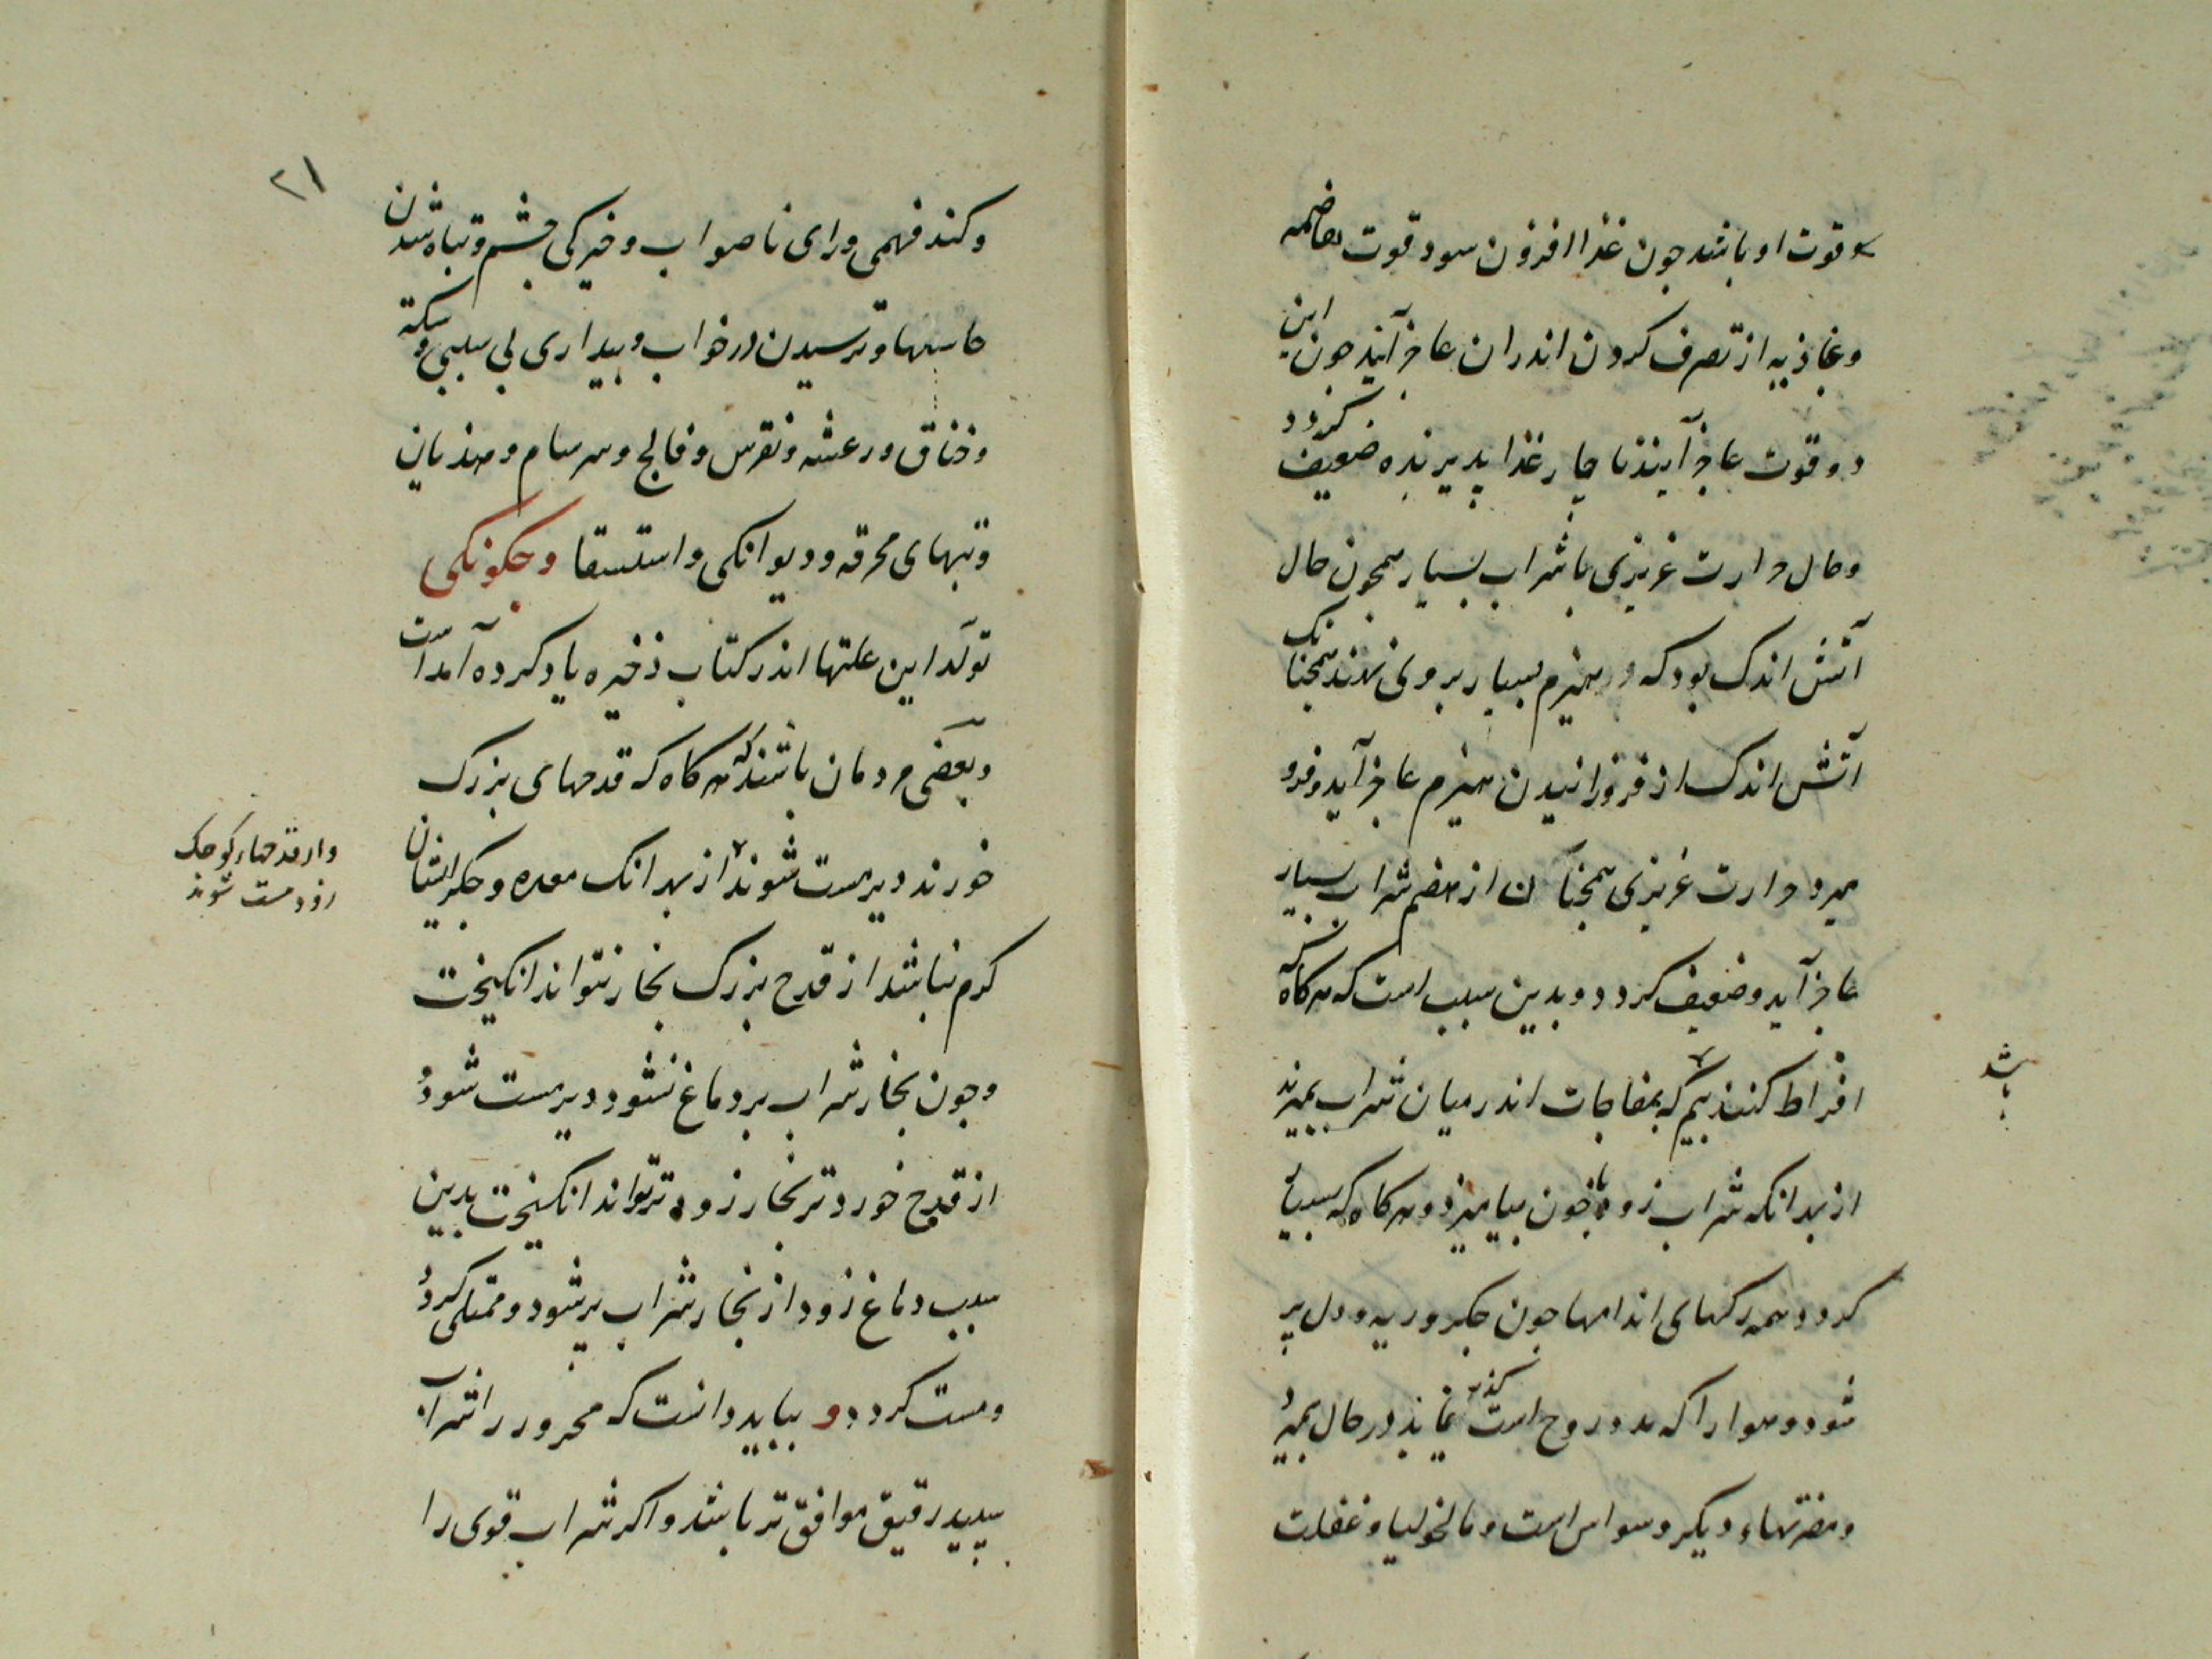 و قوت او باشد جون غذا افزون سود قوت هاضمه
و غاذیه از تصرف کردن اندران عاجز آیند جون این
دو قوت عاجز آیند ناچار غذا پذیرنده ضعیف کردد
و حال حرارت غریزی با شراب بسیار همجون حال
آتش اندک بود که هیزم بسیار بر وی نهند همجنانک
آتش اندک از فروزانیدن هیزم عاجز آید و فرو
میرد حرارت غریزی همجنان از هضم شراب بسیار
عاجز آید و ضعیف کردد و بدین سبب است که هرکاه که
افراط کنند بیم که بمفاجات اندر میان شراب بمیرند
باشد
از بهر انکه شراب زود با خون بیامیزد و هرکاه که بسیار
کردد همه رکهای اندامها جون جکر و ریه و دل پر
شود و هوا را که مدد روح است کذر نماند در حال بمیرد
و مضرتهاء دیکر وسواس است و مالخولیا و غفلت
۲۱
و کند فهمی و رای ناصواب و خیرکی چشم و تباه شدن
حاستها و ترسیدن در خواب و بیداری بی سببی و سکته
و خناق و رعشه و نقرس و فالج و سرسام و هذیان
و تبهای محرقه و دیوانکی و استسقا و جکونکی
تولد این علتها اندر کتاب ذخیره یاد کرده آمد است
و بعضی مردمان باشند که هرکاه که قدحهای بزرک
خورند دیر مست شوند از بهر انک معده و جکر ایشان
واز قدحهاء کوجک
زود مست شوند
کرم نباشد از قدح بزرک بخار نتواند انکیخت
و جون بخار شراب بر دماغ نشود دیر مست شود و
از قدح خورد تر بخار زود تر تواند انکیخت بدین
سبب دماغ زود از بخار شراب پر شود و ممتلی کردد
و مست کردد و بباید دانست که محرور را شراب
سپید رقیق موافق تر باشد و اکر شراب قوی را